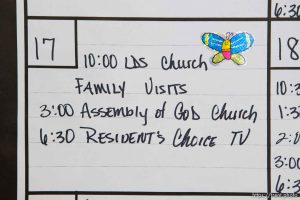 17
10:00 LDS Church
FAMILY VISITS
3:00 Assembly of God Church
6:30 RESIDENT'S CHOICE TV
6:30
18
10:3
1:3
2:0
3:0
6:3